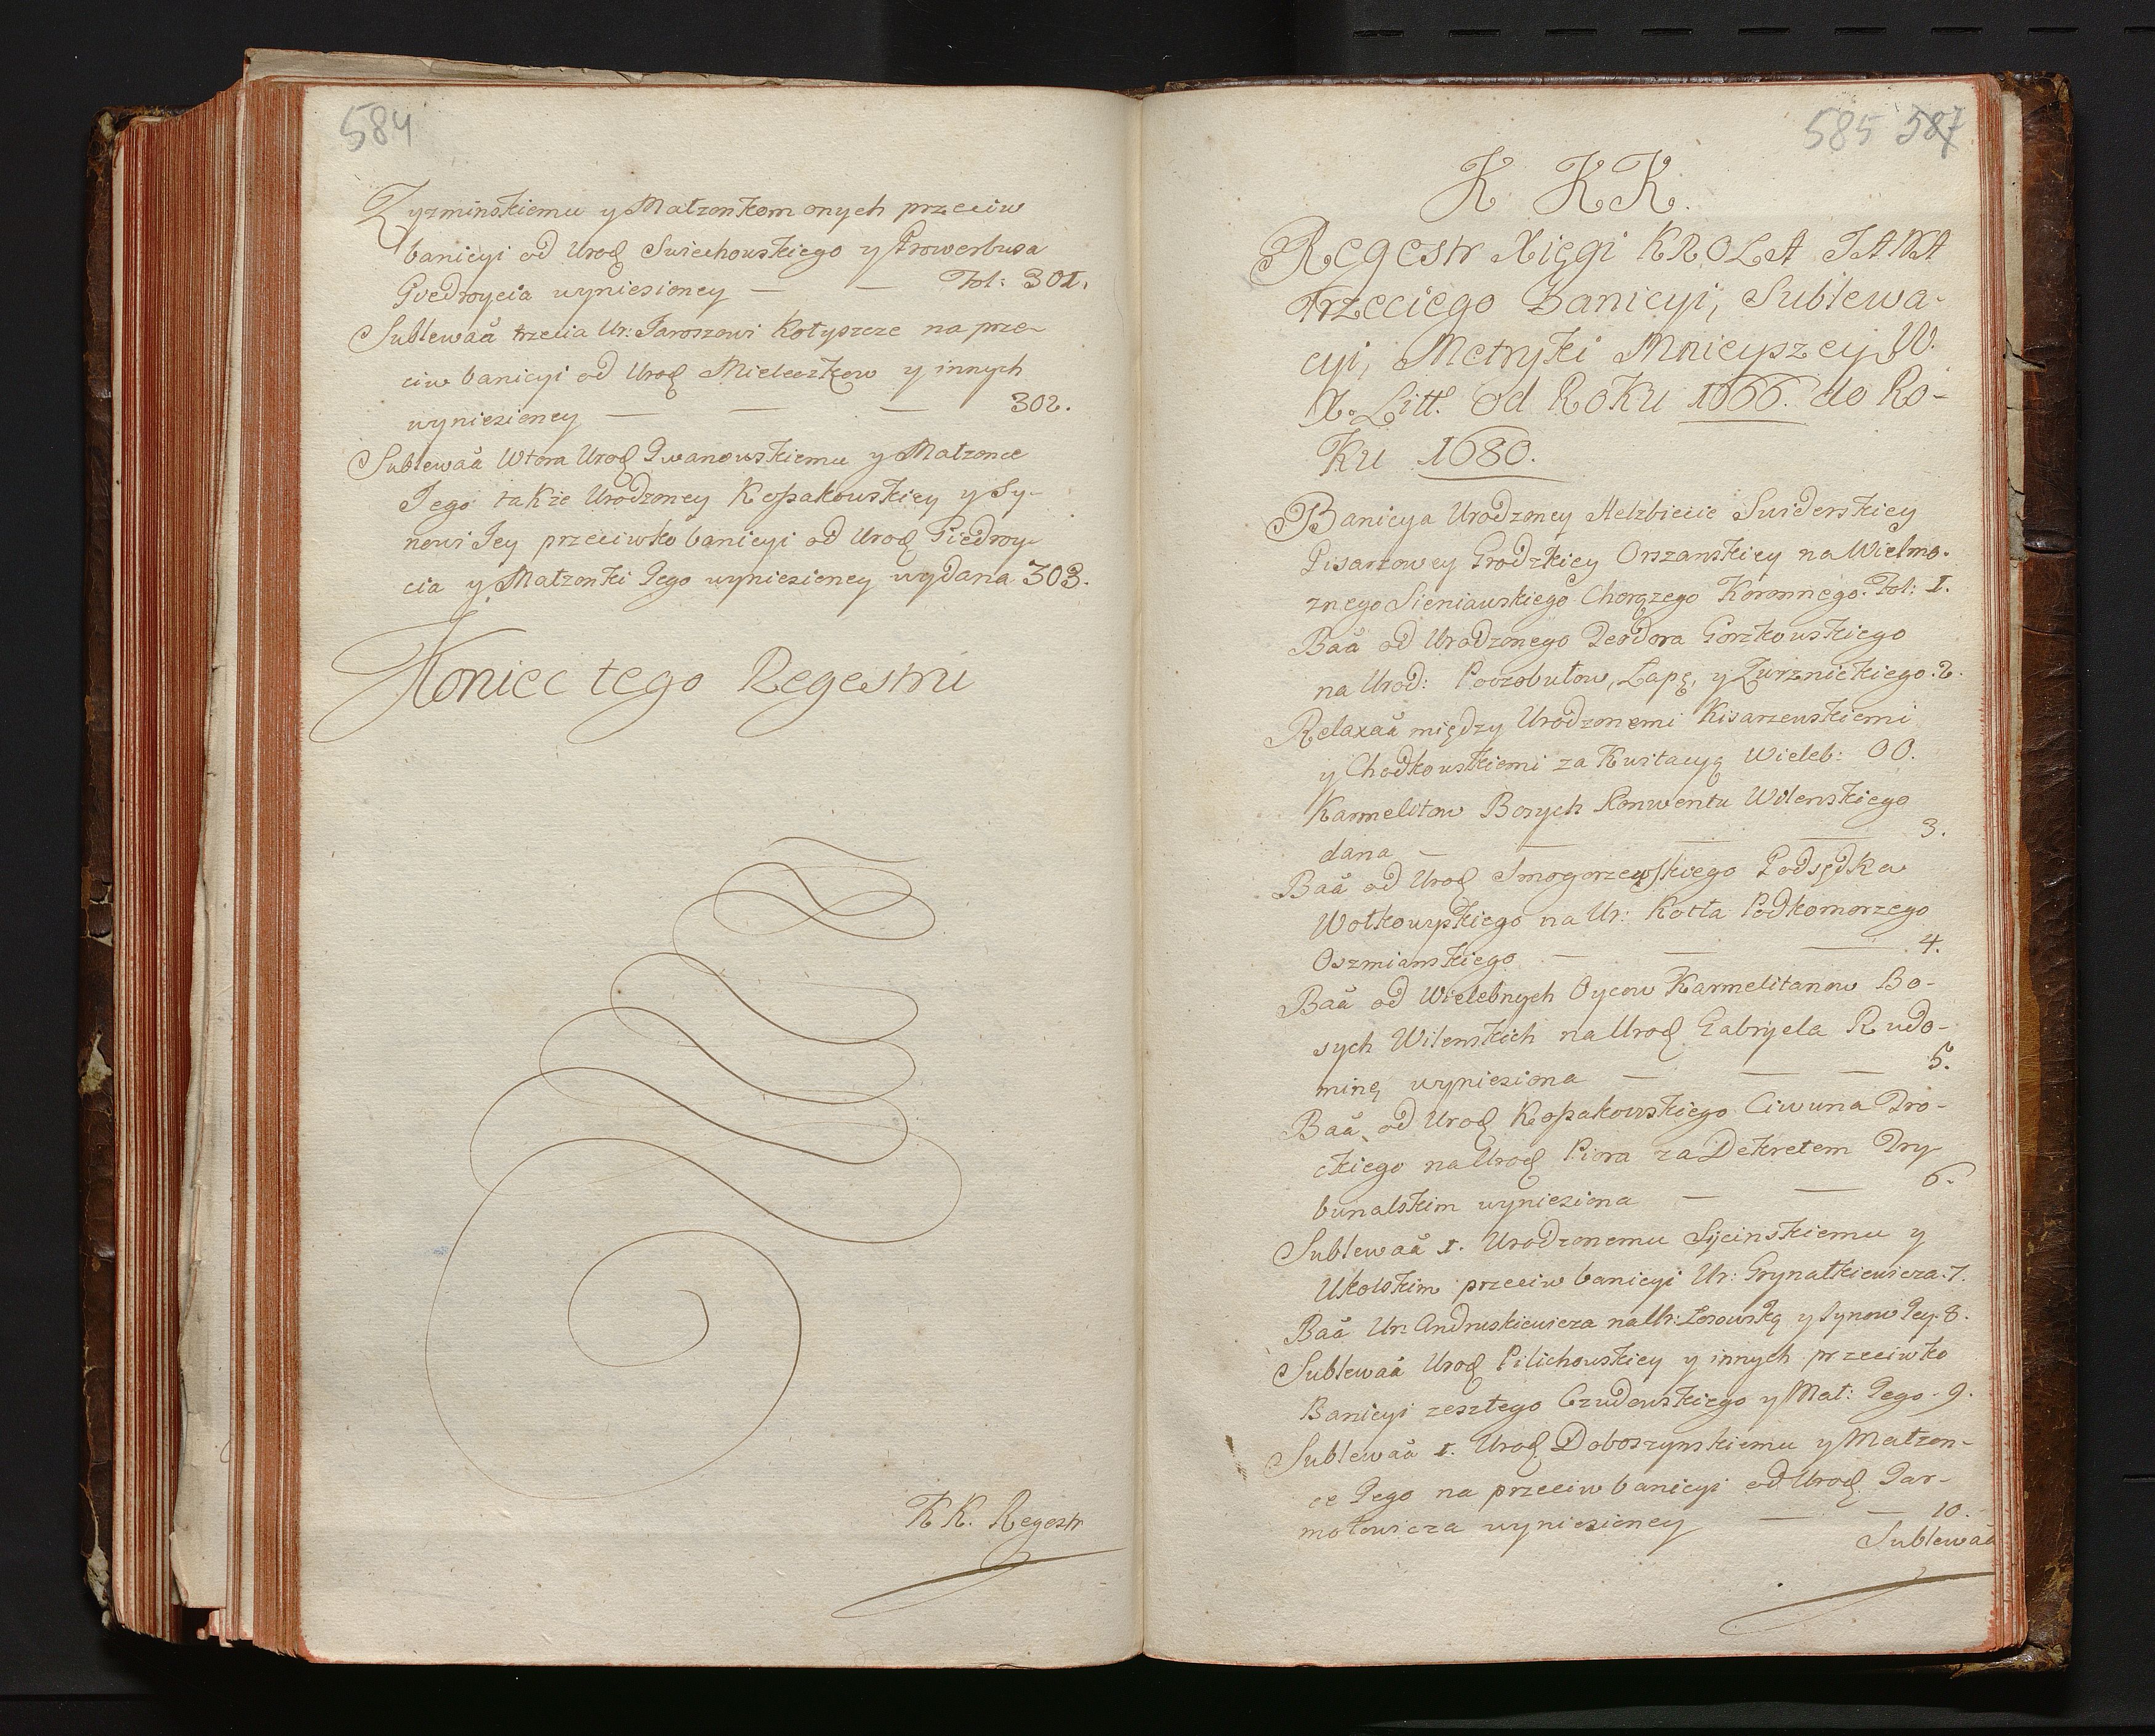 584
Zyzminskiemu y Małzonkom onych przeciw
banicyi od Urod Swiechowskiego y Prowerbusa
Giedroycia wyniesioney — — Fol: 301.
Sublewaa trzecia Ur: Jaroszowi Kotyszcze na prze-
ciw banicyi od Urod Mieleczkow y innych
wyniesioney — — — 302.
Sublewaa Wtora Urod Iwanowskiemu y Małzonce
Jego także Urodzoney Kossakowskiey y Sy-
nowi Jey przeciwko banicyi od Urod Giedroy-
cia y Małzonki Jego wyniesioney wydana 303.
Koniec tego Regestru
KK. Regestr
585 587
K KK.
Regestr Xięgi KROLA JANA
trzeciego Banicyi, Sublewa-
cyi, Metryki Mnieyszey W.
X. Litt. od Roku 1666. do Ro-
ku 1680.
Banicya Urodzoney Helzbiecie Swiderskiey
Pisarzowey Grodzkiey Orszanskiey na Wielmo-
znego Sieniawskiego Chorązego Koronnego. Fol: 1.
Baa od Urodzonego Teodora Gorzkowskiego
na Urod: Poczobutow, Łapę, y Zurznickiego. 2.
Relaxaa między Urodzonemi Kisarzewskiemi
y Chodkowskiemi za Kwitacyą Wieleb: OO.
Karmelitow Bosych Konwentu Wilenskiego
dana — — — — 3.
Baa od Urod Smogorzewskiego Podsędka
Wołkowyskiego na Ur: Kotła Podkomorzego
Oszmianskiego — — — 4.
Baa od Wielebnych Oycow Karmelitanow Bo-
sych Wilenskich na Urod Gabryela Rudo-
minę wyniesiona — — — 5.
Baa od Urod Kossakowskiego Ciwuna Tro-
ckiego na Urod Piora za Dekretem Try-
bunalskim wyniesiona — — 6.
Sublewaa 1. Urodzonemu Sycinskiemu y
Ukolskim przeciw banicyi Ur: Grynatkiewicza. 7.
Baa Ur: Andruskiewicza na Ur: Losowską y Synow Jey. 8.
Sublewaa Urod Pilichowskiey y innych przeciwko
Banicyi zeszłego Czudowskiego y Mał: Jego. 9.
Sublewaa 1. Urod Doboszynskiemu y Małzon-
ce Jego na przeciw banicyi od Urod Jar-
mołowicza wyniesioney — — 10.
Sublewaa